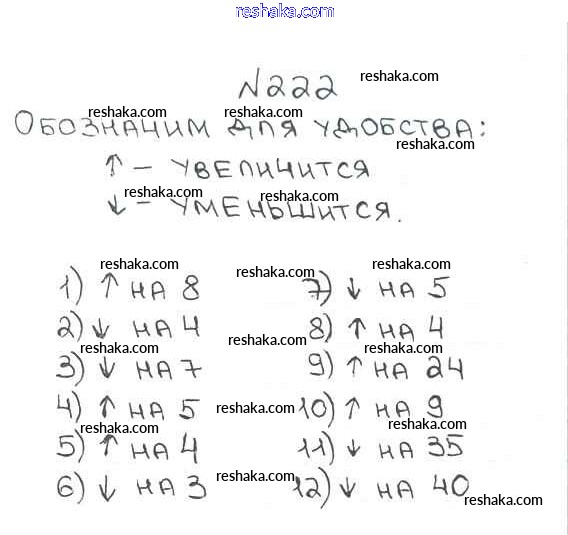 reshaka.com
N222 reshaka.com
reshaka.com reshaka.com
ОБОЗНАЧИМ ДЛЯ УДОБСТВА:
reshaka.com
↑ – УВЕЛИЧИТСЯ
reshaka.com reshaka.com
↓ – УМЕНЬШИТСЯ.
reshaka.com reshaka.com reshaka.com
1) ↑ НА 8 7) ↓ НА 5
2) ↓ НА 4 8) ↑ НА 4
reshaka.com reshaka.com reshaka.com
3) ↓ НА 7 9) ↑ НА 24
4) ↑ НА 5 reshaka.com 10) ↑ НА 9
reshaka.com reshaka.com
5) ↑ НА 4 11) ↓ НА 35
6) ↓ НА 3 reshaka.com 12) ↓ НА 40
reshaka.com